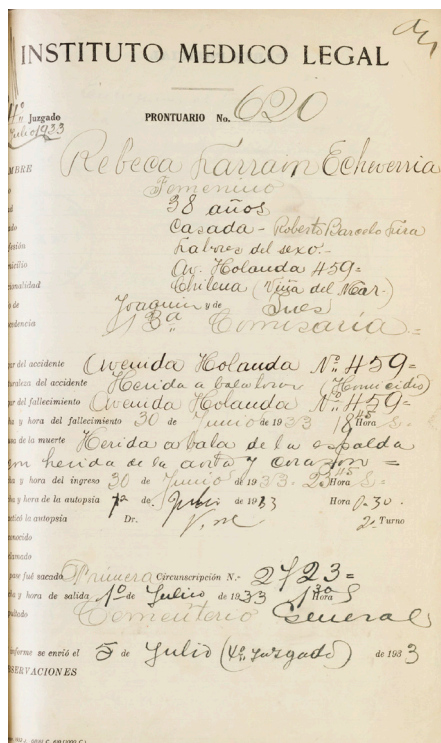 INSTITUTO MEDICO LEGAL
4º Juzgado
Julio 1933
PRONTUARIO No. 620
MBRE Rebeca Larrain Echeverria
Femenino
38 años
Casada - Roberto Barcelo Lira
esión Labores del sexo.-
icilio Av. Holanda 459=
ionalidad Chilena (Viña del Mar-)
o de Joaquin y de Ines
cedencia 13a. Comisaría =
ar del accidente Avenida Holanda No. 459=
uraleza del accidente Herida a bala (Homicidio)
ar del fallecimiento Avenida Holanda No. 459=
ha y hora del fallecimiento 30 de Junio de 1933 18 45 Hora S.
sa de la muerte Herida a bala de la espalda
herida de la aorta y corazon =
ha y hora del ingreso 30 de Junio de 1933. 23 45 Hora S
ha y hora de la autopsia 1º de Julio de 1933 Hora 0.30.
acticó la autopsia Dr. 2º Turno
conocido
clamado
pase fué sacado Primera Circunscripción N.- 2723=
ha y hora de salida 1º de Julio de 1933 Hora S
pultado Cementerio General
informe se envió el 5 de Julio (4º Juzgado) de 1933
SERVACIONES